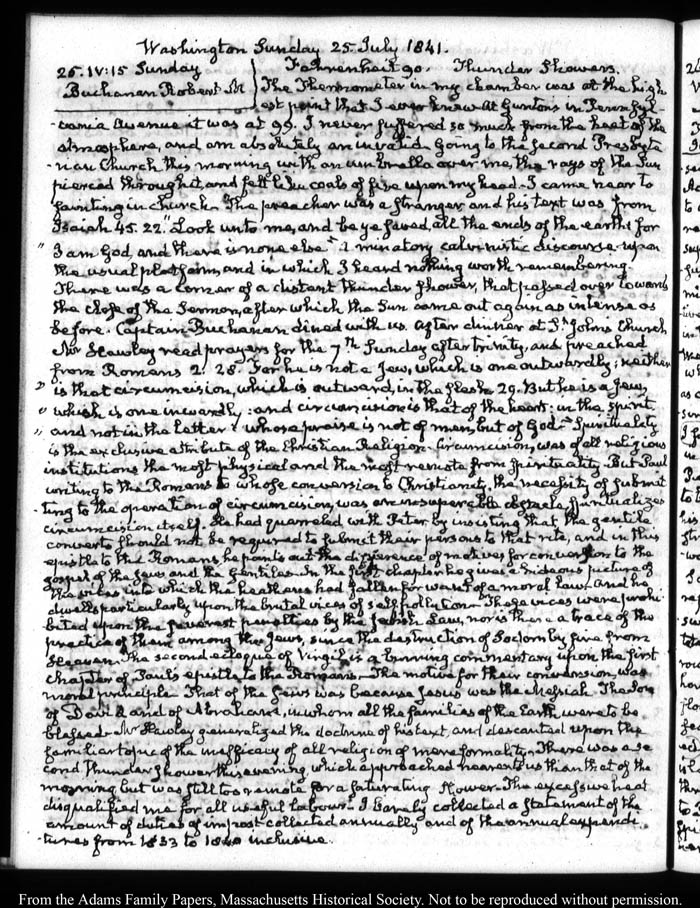 Washington Sunday 25. July 1841.
25. IV:15 Sunday Fahrenheit 90. Thunder Showers.
Buchanan Robert M The Thermometer in my chamber was at the high
est point that I ever knew At Gunton's in Pennsyl-
-vania Avenue it was at 99. I never suffered so much from the heat of the
atmosphere, and am absolutely an invalid. Going to the Second Presbyte
rian Church this morning with an umbrella over me, the rays of the Sun
pierced through it, and fell like coals of fire upon my head. I came near to
fainting in church. The preacher was a stranger and his text was from
Isaiah 45. 22. "Look unto me, and be ye saved, all the ends of the earth: for
" I am God, and there is none else" A minatory calvinistic discourse upon
the usual platform, and in which I heard nothing worth remembering.
There was a corner of a distant thunder shower, that passed over towards
the close of the Sermon, after which the Sun came out again as intense as
before. Captain Buchanan dined with us. After dinner at St. Johns Church
Mr Hawley read prayers for the 7th Sunday after trinity, and preached
from Romans 2. 28. For he is not a Jew, which is one outwardly; neither
" is that circumcision, which is outward, in the flesh 29. But he is a Jew,
" which is one inwardly: and circumcision is that of the heart: in the spirit,
" and not in the letter: whose praise is not of men, but of God" Spirituality
is the exclusive attribute of the Christian Religion. Circumcision, was of all religious
institutions the most physical and the most remote from Spirituality. But Paul
writing to the Romans to whose conversion to Christianity, the necessity of submit
-ting to the operation of circumcision, was an insuperable obstacle, Spiritualizes
circumcision itself. He had quarreled with Peter by insisting that the gentile
converts should not be required to submit their persons to that rite, and in this
epistle to the Romans, he points out the difference of motives for conversion to the
gospel of the Jews and the Gentiles. In the first chapter he gives a hideous picture of
the vices into which the heathens had fallen for want of a moral law. And he
dwells particularly upon the brutal vices of self pollution. These vices were prohi
-bited upon the severest penalties by the Jewish Law, nor is there a trace of the
practice of them among the Jews, since the destruction of Sodom by fire from
Heaven. The second eclogue of Virgil is a burning commentary upon the first
chapter of Paul's epistle to the Romans. The motive for their conversion, was
moral principle. That of the Jews was because Jesus was the Messiah. The Son
of David and of Abraham, in whom all the families of the Earth were to be
blessed. Mr Hawley generalized the doctrine of his text, and descanted upon the
familiar topic of the inefficacy of all religion of mere formality. There was a se
cond thunder shower this evening, which approached nearer to us than that of the
morning, but was still too remote for a saturating shower. The excessive heat
disqualified me for all useful labour. I barely collected a statement of the
amount of duties of impost collected annually and of the annual expendi
-tures from 1833 to 1840 inclusive.
From the Adams Family Papers, Massachusetts Historical Society. Not to be reproduced without permission.